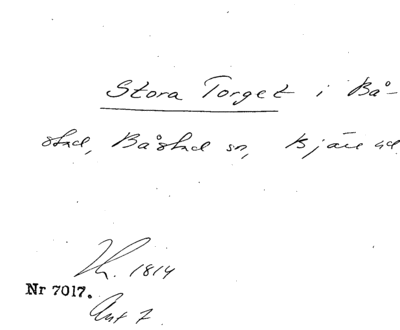 Stora Torget i Bå-
stad, Båstad sn, Bjäre hd
Th. 1814
Nr 7017.
Ant 7